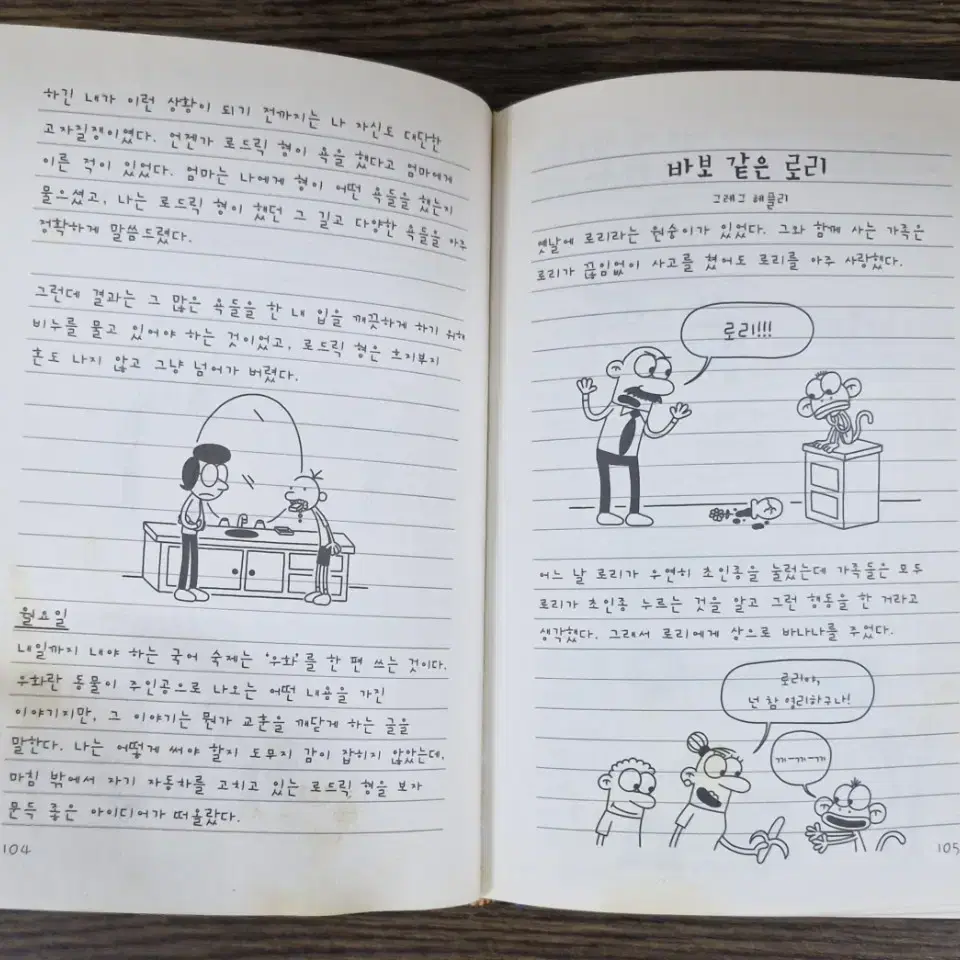 하긴 내가 이런 상황이 되기 전까지는 나 자신도 대단한
고자질쟁이였다. 언젠가 로드릭 형이 욕을 했다고 엄마에게
이른 적이 있었다. 엄마는 나에게 형이 어떤 욕들을 했는지
물으셨고, 나는 로드릭 형이 했던 그 길고 다양한 욕들을 아주
정확하게 말씀드렸다.
그런데 결과는 그 많은 욕들을 한 내 입을 깨끗하게 하기 위해
비누를 물고 있어야 하는 것이었고, 로드릭 형은 흐지부지
혼도 나지 않고 그냥 넘어가 버렸다.
월요일
내일까지 내야 하는 국어 숙제는 '우화'를 한 편 쓰는 것이다.
우화란 동물이 주인공으로 나오는 어떤 내용을 가진
이야기지만, 그 이야기는 뭔가 교훈을 깨닫게 하는 글을
말한다. 나는 어떻게 써야 할지 도무지 감이 잡히지 않았는데,
마침 밖에서 자기 자동차를 고치고 있는 로드릭 형을 보자
문득 좋은 아이디어가 떠올랐다.
104
바보 같은 로리
그레그 헤플리
옛날에 로리라는 원숭이가 있었다. 그와 함께 사는 가족은
로리가 끊임없이 사고를 쳤어도 로리를 아주 사랑했다.
로리!!!
어느 날 로리가 우연히 초인종을 눌렀는데 가족들은 모두
로리가 초인종 누르는 것을 알고 그런 행동을 한 거라고
생각했다. 그래서 로리에게 상으로 바나나를 주었다.
로리야,
넌 참 영리하구나!
끼-끼-끼
105